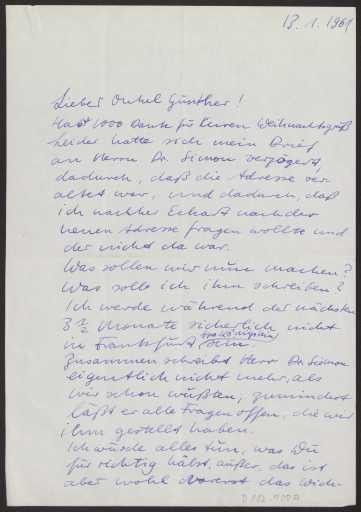 13.1.1961
Lieber Onkel Günther!
Hast 1000 Dank für Deinen Weihnachtsgruß
Leider hatte sich mein Brief
an Herrn Dr. Simon verzögert,
dadurch, daß die Adresse ver
altet war, und dadurch, daß
ich nachher Eckart nach der
neuen Adresse fragen wollte und
der nicht da war.
Was sollen wir nun machen?
Was soll ich ihm schreiben?
Ich werde während der nächsten
3 Monate sicherlich nicht
in Frankfurt sein.
Zusammen schreibt Herr Dr. Simon
eigentlich nicht mehr, als
wir schon wußten, zumindest
läßt er alle Fragen offen, die wir
ihm gestellt haben.
Ich würde alles tun, was Du
für richtig hälst, außer, das ist
aber wohl das